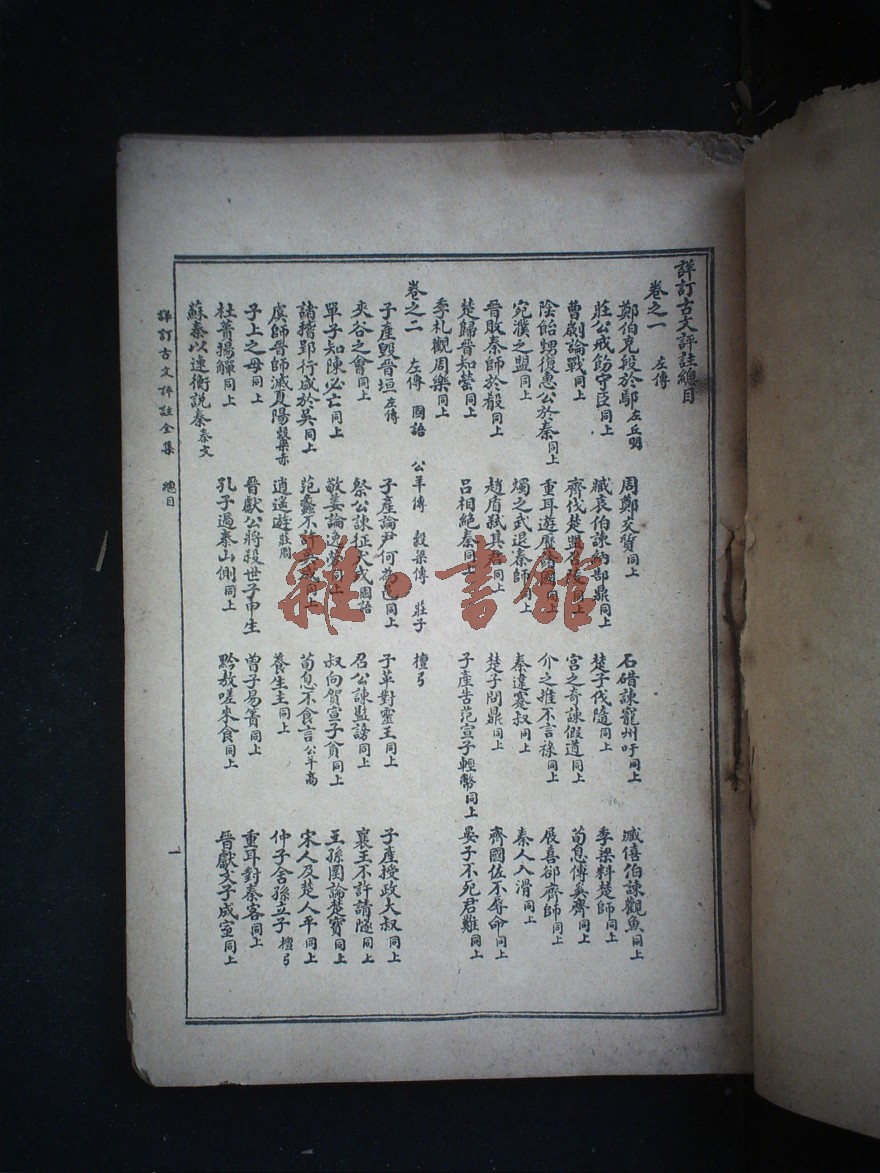 詳訂古文評註總目
卷之一 左傳
鄭伯克段於鄢左丘明 周鄭交質同上 石碏諫寵州吁同上 臧僖伯諫觀魚同上
莊公戒飭守臣同上 臧哀伯諫納郜鼎同上 楚子伐隨同上 季梁料楚師同上
曹劌論戰同上 齊伐楚盟召陵同上 宮之奇諫假道同上 荀息傅奚齊同上
陰飴甥復惠公於秦同上 重耳遊歷諸國同上 介之推不言祿同上 展喜郤齊師同上
宛濮之盟同上 燭之武退秦師同上 秦違蹇叔同上 秦人入滑同上
晉敗秦師於殽同上 趙盾弒其君同上 楚子問鼎同上 齊國佐不辱命同上
楚歸晉知罃同上 呂相絕秦同上 子產告范宣子輕幣同上 晏子不死君難同上
季札觀周樂同上
卷之二 左傳 國語 公羊傳 穀梁傳 莊子 檀弓
子產毀晉垣左傳 子產論尹何為邑同上 子革對靈王同上 子產授政大叔同上
夾谷之會同上 祭公諫征犬戎國語 召公諫監謗同上 襄王不許請隧同上
單子知陳必亡同上 敬姜論逸勞同上 叔向賀宣子貧同上 王孫圉論楚寶同上
諸稽郢行成於吳同上 范蠡不許吳成同上 荀息不食言公羊高 宋人及楚人平同上
虞師晉師滅夏陽穀梁赤 逍遙遊莊周 養生主同上 仲子舍孫立子檀弓
子上之母同上 晉獻公將殺世子申生 曾子易簀同上 重耳對秦客同上
杜蕢揚觶同上 孔子過泰山側同上 黔敖嗟來食同上 晉獻文子成室同上
蘇秦以連衡説秦秦文
詳訂古文評註全集 總目 一
雜·書館